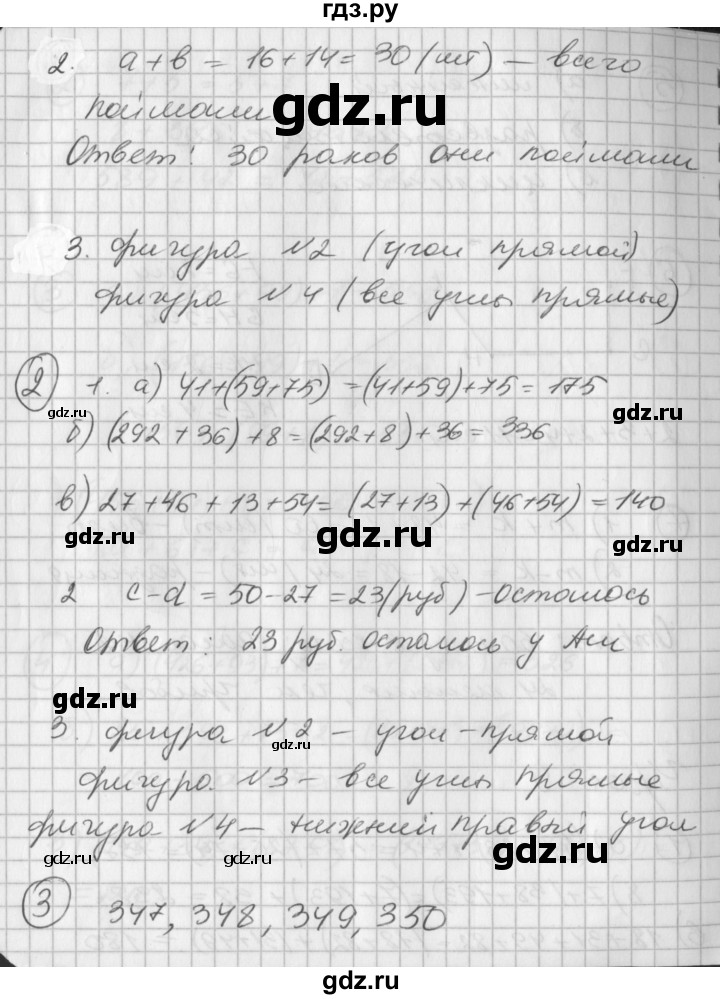 гдз.ру
2. a+b = 16+14= 30 (шт) – всего
поймали
gdz.ru
Ответ: 30 раков они поймали
3. фигура №2 (угол прямой)
фигура №4 (все углы прямые)
2 1. а) 41+(59+75) =(41+59)+75= 175
б) (292 + 36) +8 =(292+8)+36= 336
gdz.ru
gdz.ru
в) 27 +46 + 13 +54= (27+13) +(46+54) = 140
gdz.ru
gdz.ru
2 c-d = 50-27 =23(руб) -осталось
Ответ: 23 руб. осталось у Ани
gdz.ru
3. фигура №2 – угол-прямой
gdz.ru
фигура №3 – все углы прямые
фигура №4 – нижний правый угол
gdz.ru
gdz.ru
gdz.ru
3 347, 348, 349, 350
gdz.ru